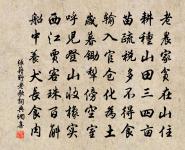 老農家貧在山住
耕種山田三四畝
苗疏稅多不得食
輸入官倉化為土
歲暮鋤犁傍空室
呼兒登山收橡實
西江賈客珠百斛
船中養犬長食肉
張籍野老歌